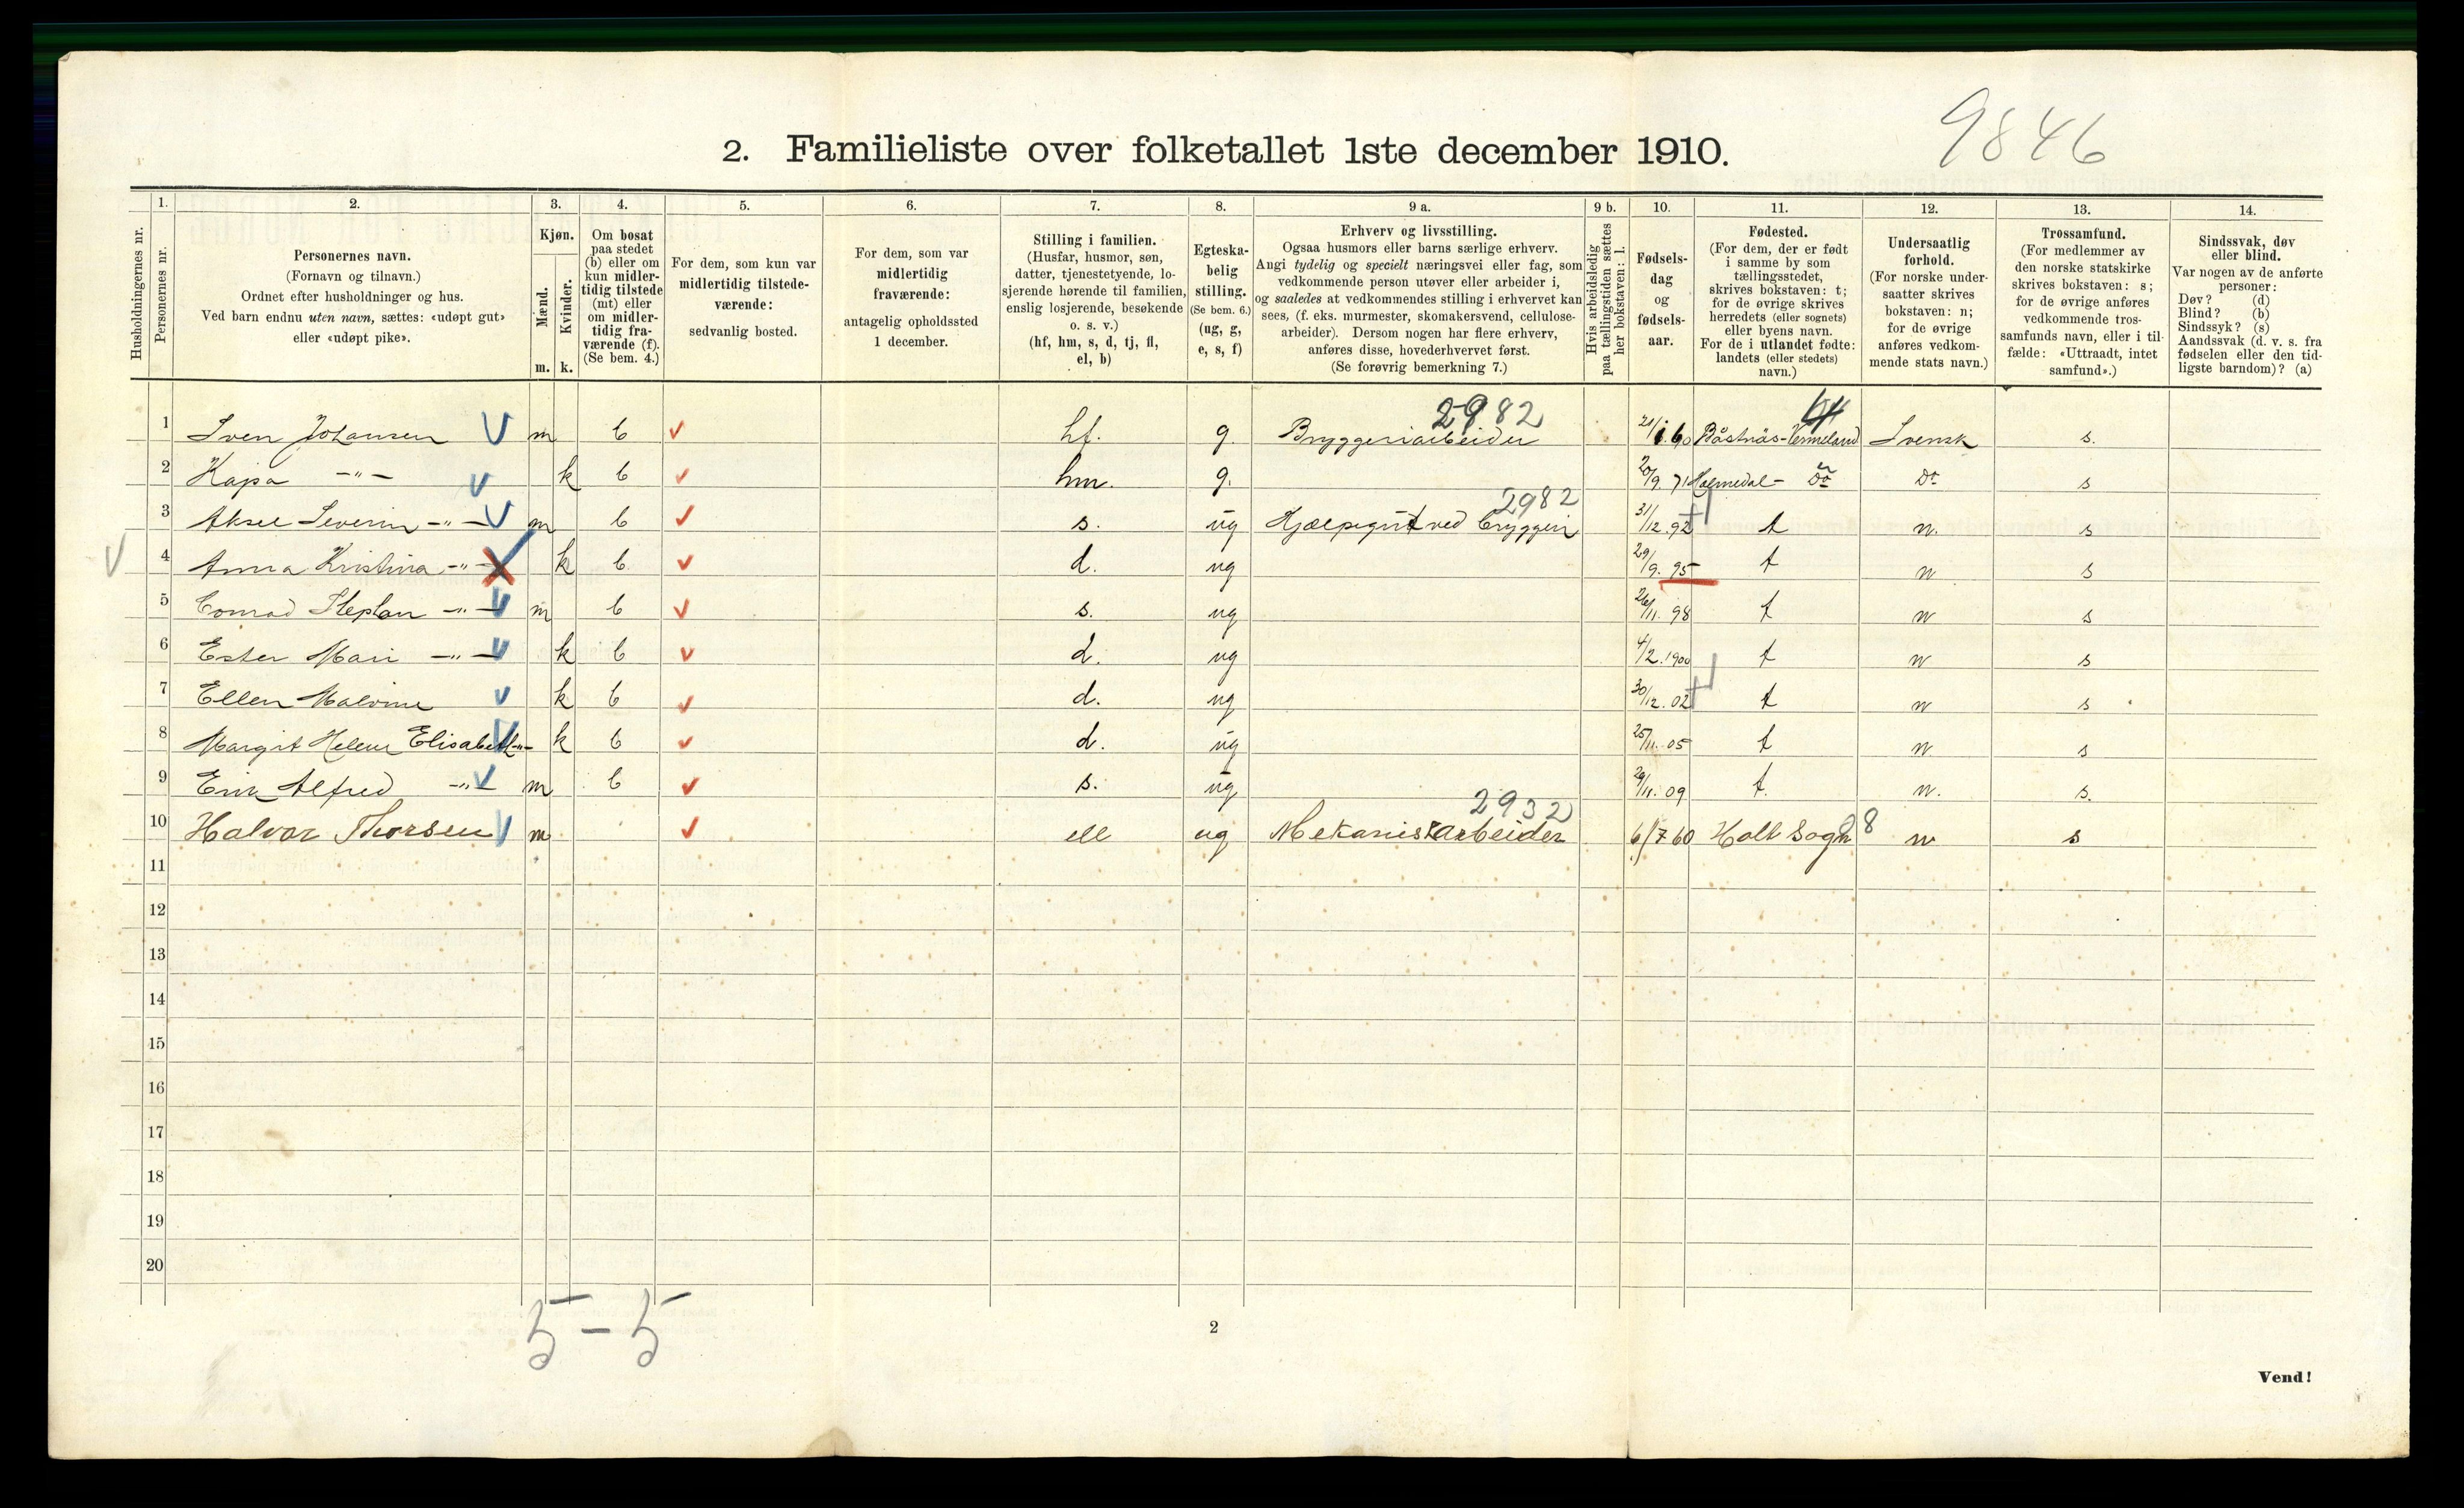 9846
2. Familieliste over folketallet 1ste december 1910.
Husholdningernes nr.
1. Personernes nr.
2. Personernes navn.
(Fornavn og tilnavn.)
Ordnet efter husholdninger og hus.
Ved barn endnu uten navn, sættes: «udøpt gut»
eller «udøpt pike».
3. Kjøn.
Mænd. m.
Kvinder. k.
4. Om bosat
paa stedet
(b) eller om
kun midler-
tidig tilstede
(mt) eller
om midler-
tidig fra-
værende (f).
(Se bem. 4.)
5. For dem, som kun var
midlertidig tilstede-
værende:
sedvanlig bosted.
6. For dem, som var
midlertidig
fraværende:
antagelig opholdssted
1 december.
7. Stilling i familien.
(Husfar, husmor, søn,
datter, tjenestetyende, lo-
sjerende hørende til familien,
enslig losjerende, besøkende
o. s. v.)
(hf, hm, s, d, tj, fl,
el, b)
8. Egteska-
belig
stilling.
(Se bem. 6.)
(ug, g,
e, s, f)
9 a. Erhverv og livsstilling.
Ogsaa husmors eller barns særlige erhverv.
Angi tydelig og specielt næringsvei eller fag, som
vedkommende person utøver eller arbeider i,
og saaledes at vedkommendes stilling i erhvervet kan
sees, (f. eks. murmester, skomakersvend, cellulose-
arbeider). Dersom nogen har flere erhverv,
anføres disse, hovederhvervet først.
(Se forøvrig bemerkning 7.)
9 b. Hvis arbeidsledig
paa tællingstiden sættes
her bokstaven: l.
10. Fødsels-
dag
og
fødsels-
aar.
11. Fødested.
(For dem, der er født
i samme by som
tællingsstedet,
skrives bokstaven: t;
for de øvrige skrives
herredets (eller sognets)
eller byens navn.
For de i utlandet fødte:
landets (eller stedets)
navn.)
12. Undersaatlig
forhold.
(For norske under-
saatter skrives
bokstaven: n;
for de øvrige
anføres vedkom-
mende stats navn.)
13. Trossamfund.
(For medlemmer av
den norske statskirke
skrives bokstaven: s;
for de øvrige anføres
vedkommende tros-
samfunds navn, eller i til-
fælde: «Uttraadt, intet
samfund».)
14. Sindssvak, døv
eller blind.
Var nogen av de anførte
personer:
Døv? (d)
Blind? (b)
Sindssyk? (s)
Aandssvak (d. v. s. fra
fødselen eller den tid-
ligste barndom)? (a)
2982
1 Sven Johansen m b hf. g. Bryggeriarbeider 21/1.60 Båstnäs-Vermeland Svensk s.
2 Kajsa -"- k b hm. g. 20/9.71 Holmedal - Do Do s
2982
3 Aksel Severin -"- m b s. ug Hjælpegut ved bryggeri 31/12.92 t n. s
4 Anna Kristina -"- k b d. ug 29/9.95 t n s
5 Conrad Stephan -"- m b s. ug 26/11.98 t n s
6 Ester Mari -"- k b d. ug 4/2.1900 t n s
7 Ellen Malvine k b d. ug 30/12.02 t n s
8 Margit Helene Elisabeth -"- k b d. ug 25/11.05 t n s
9 Erik Alfred -"- m b s. ug 29/11.09 t. n. s.
2932
10 Halvor Thorsen m ell ug Mekaniskarbeider 6/7 60 Holt Sogn 8 n s
11
12
13
14
15
16
17
18
19
20
5 - 5
2
Vend!